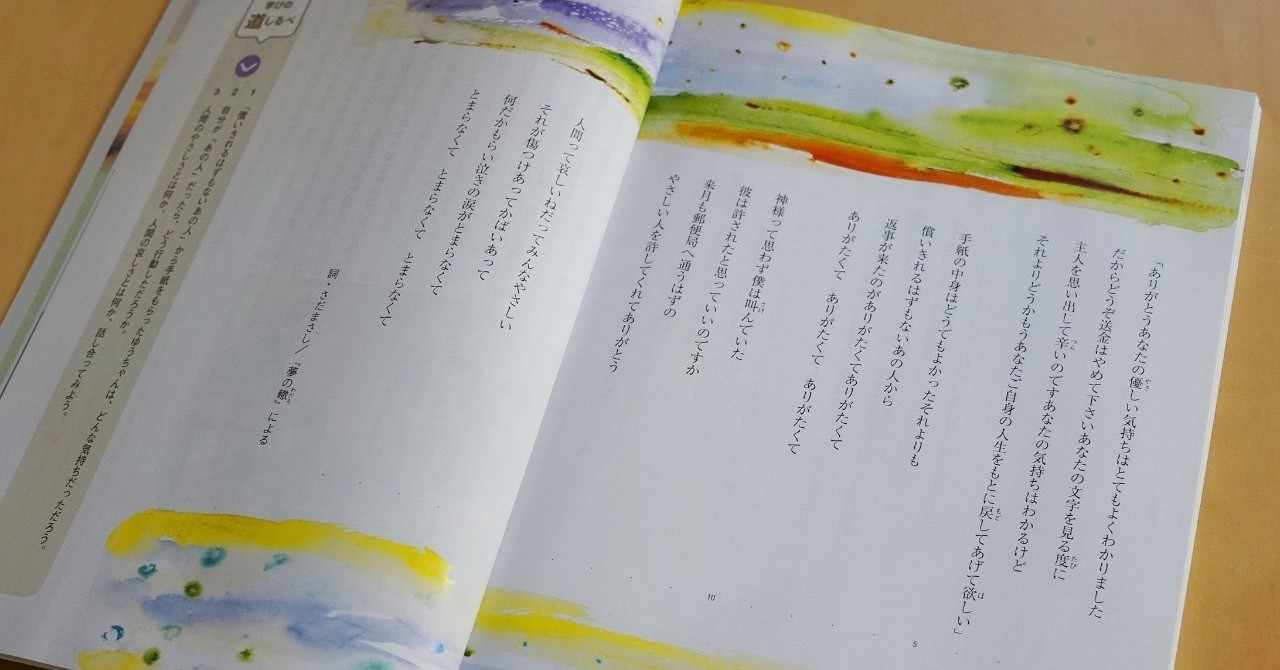 「ありがとうあなたの優しい気持ちはとてもよくわかりました
だからどうぞ送金はやめて下さいあなたの文字を見る度に
主人を思い出して辛いのですあなたの気持ちはわかるけど
それよりどうかもうあなたご自身の人生をもとに戻してあげて欲しい」
手紙の中身はどうでもよかったそれよりも
償いきれるはずもないあの人から
返事が来たのがありがたくてありがたくて
ありがたくて　ありがたくて　ありがたくて
神様って思わず僕は叫んでいた
彼は許されたと思っていいのですか
来月も郵便局へ通うはずの
やさしい人を許してくれてありがとう
5
10
人間って哀しいねだってみんなやさしい
それが傷つけあってかばいあって
何だかもらい泣きの涙がとまらなくて
とまらなくて　とまらなくて　とまらなくて
詞・さだまさし／『夢の轍』による
学びの
道しるべ
1 「償いきれるはずもないあの人」から手紙をもらったゆうちゃんは、どんな気持ちだっただろう。
2 自分が「あの人」だったら、どう行動しただろうか。
3 人間のやさしさとは何か、人間の哀しさとは何か、話し合ってみよう。